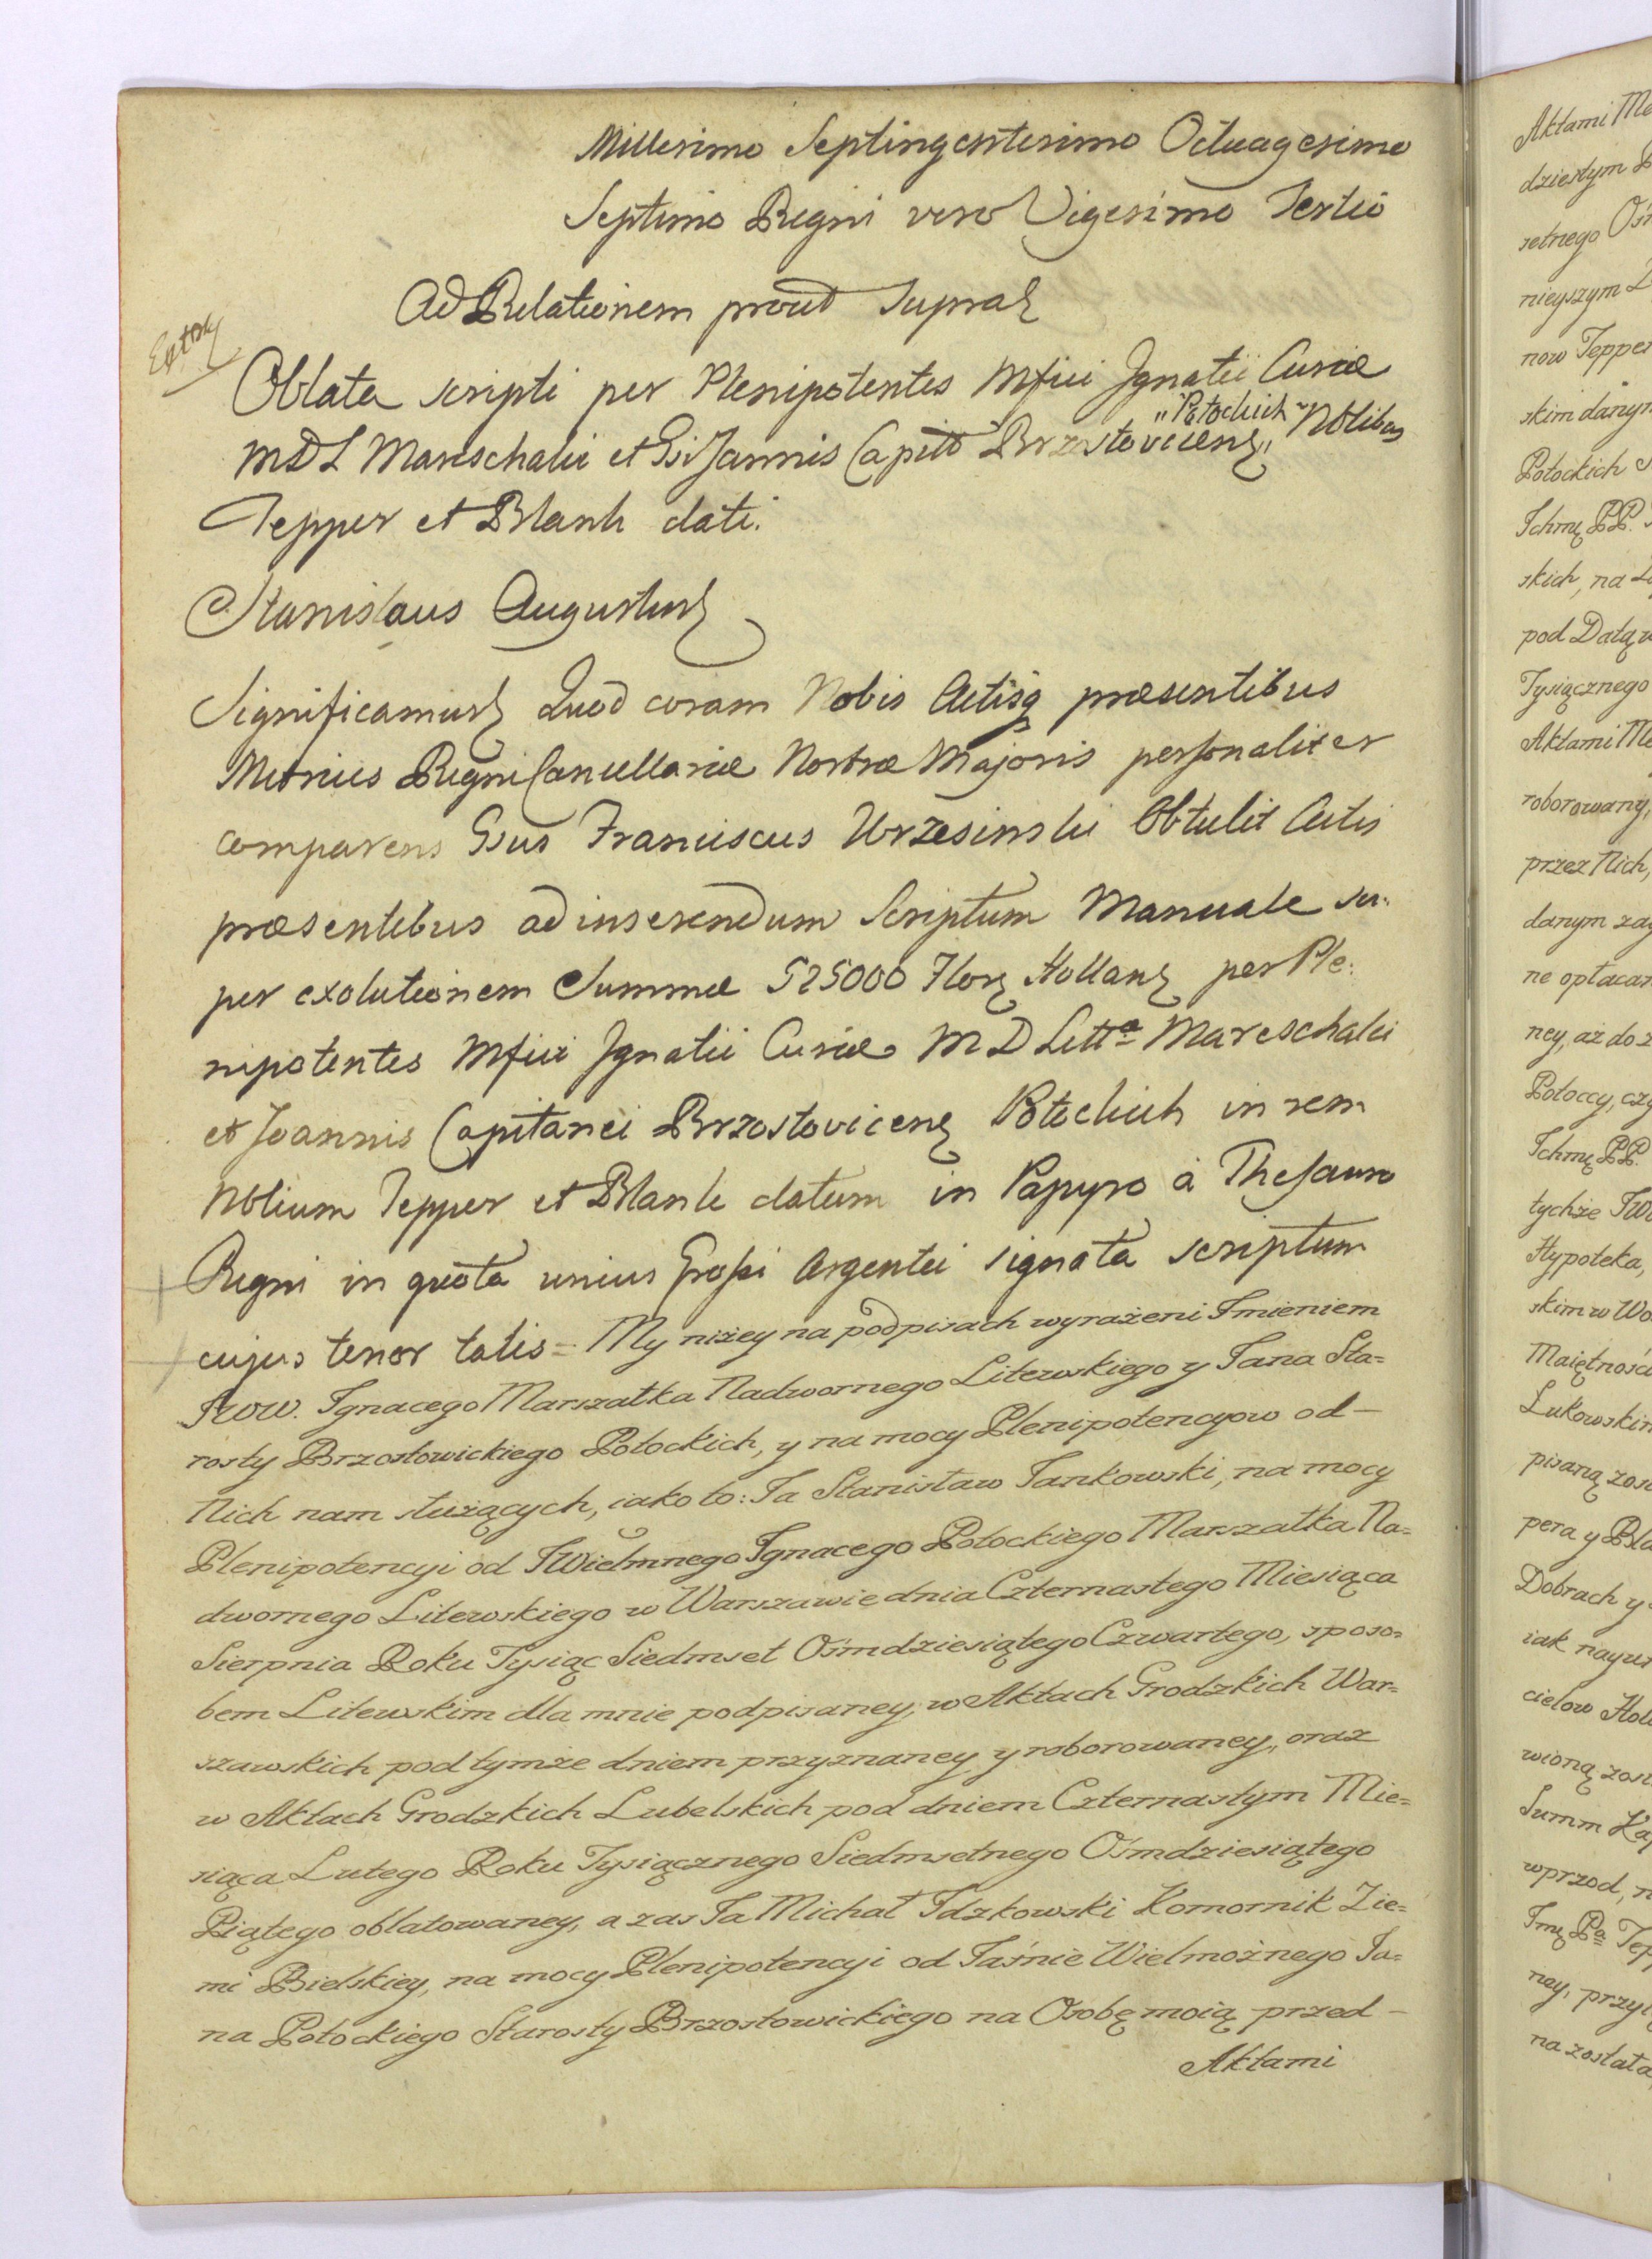 Millesimo Septingentesimo Octuagesimo
Septimo Regni vero Vigesimo Tertio
Ad Relationem prout Supra
Oblata scripti per Plenipotentes Mfici Ignatii Curiæ
MDL Mareschalci et Gsi Joannis Capitt Brzostovicens "Potockich" Nobilibus
Tepper et Blank dati.
Stanislaus Augustus
Significamus Quod coram Nobis Actisq præsentibus
Metrices Regni Cancellariæ Nostræ Majoris personaliter
comparens Gsus Franciscus Wrzesinski Obtulit Actis
præsentibus ad inserendum Scriptum Manuale su:
per exolutionem Summæ 525000 Flor Hollan per Ple:
nipotentes Mfici Ignatii Curiæ M D Litt Mareschalci
et Joannis Capitanei Brzostovicens Potockich in rem
Nobilium Tepper et Blank datum in Papyro à Thesauro
Regni in quota unius Grossi Argentei signata scriptum
cujus tenor talis = My niżey na podpisach wyrażeni Imieniem
JWW. Ignacego Marszałka Nadwornego Litewskiego y Jana Sta=
rosty Brzostowickiego Potockich, y na mocy Plenipotencyow od –
Nich nam służących, iako to: Ja Stanisław Jankowski, na mocy
Plenipotencyi od JWielmnego Ignacego Potockiego Marszałka Na=
dwornego Litewskiego w Warszawie dnia Czternastego Miesiąca
Sierpnia Roku Tysiąc Siedmset Ośmdziesiątego Czwartego, sposo=
bem Litewskim dla mnie podpisaney, w Aktach Grodzkich War=
szawskich pod tymże dniem przyznaney, y roborowaney, oraz
w Aktach Grodzkich Lubelskich pod dniem Czternastym Mie=
siąca Lutego Roku Tysiącznego Siedmsetnego Ośmdziesiątego
Piątego oblatowaney, a zas Ja Michał Idzkowski Komornik Zie=
mi Bielskiey, na mocy Plenipotencyi od Jaśnie Wielmożnego Ja=
na Potockiego Starosty Brzostowickiego na Osobę moią przed –
Aktami
Aktami
dziestym
setnego
nieyszym
now Tepper
skim danym
Potockich
Ichmę PP.
skich, na
pod Datą
Tysiącznego
Aktami
roborowany,
przez Nich,
danym
ne opłacan
ney, aż do
Potoccy,
Ichmę PP.
tychże
Hypoteka,
skim w
Maiętnośc
Łukowskim
pisaną
pera y
Dobrach y
iak
cielow
wioną
Summ
wprzod,
Jmę Pa
ney,
na została